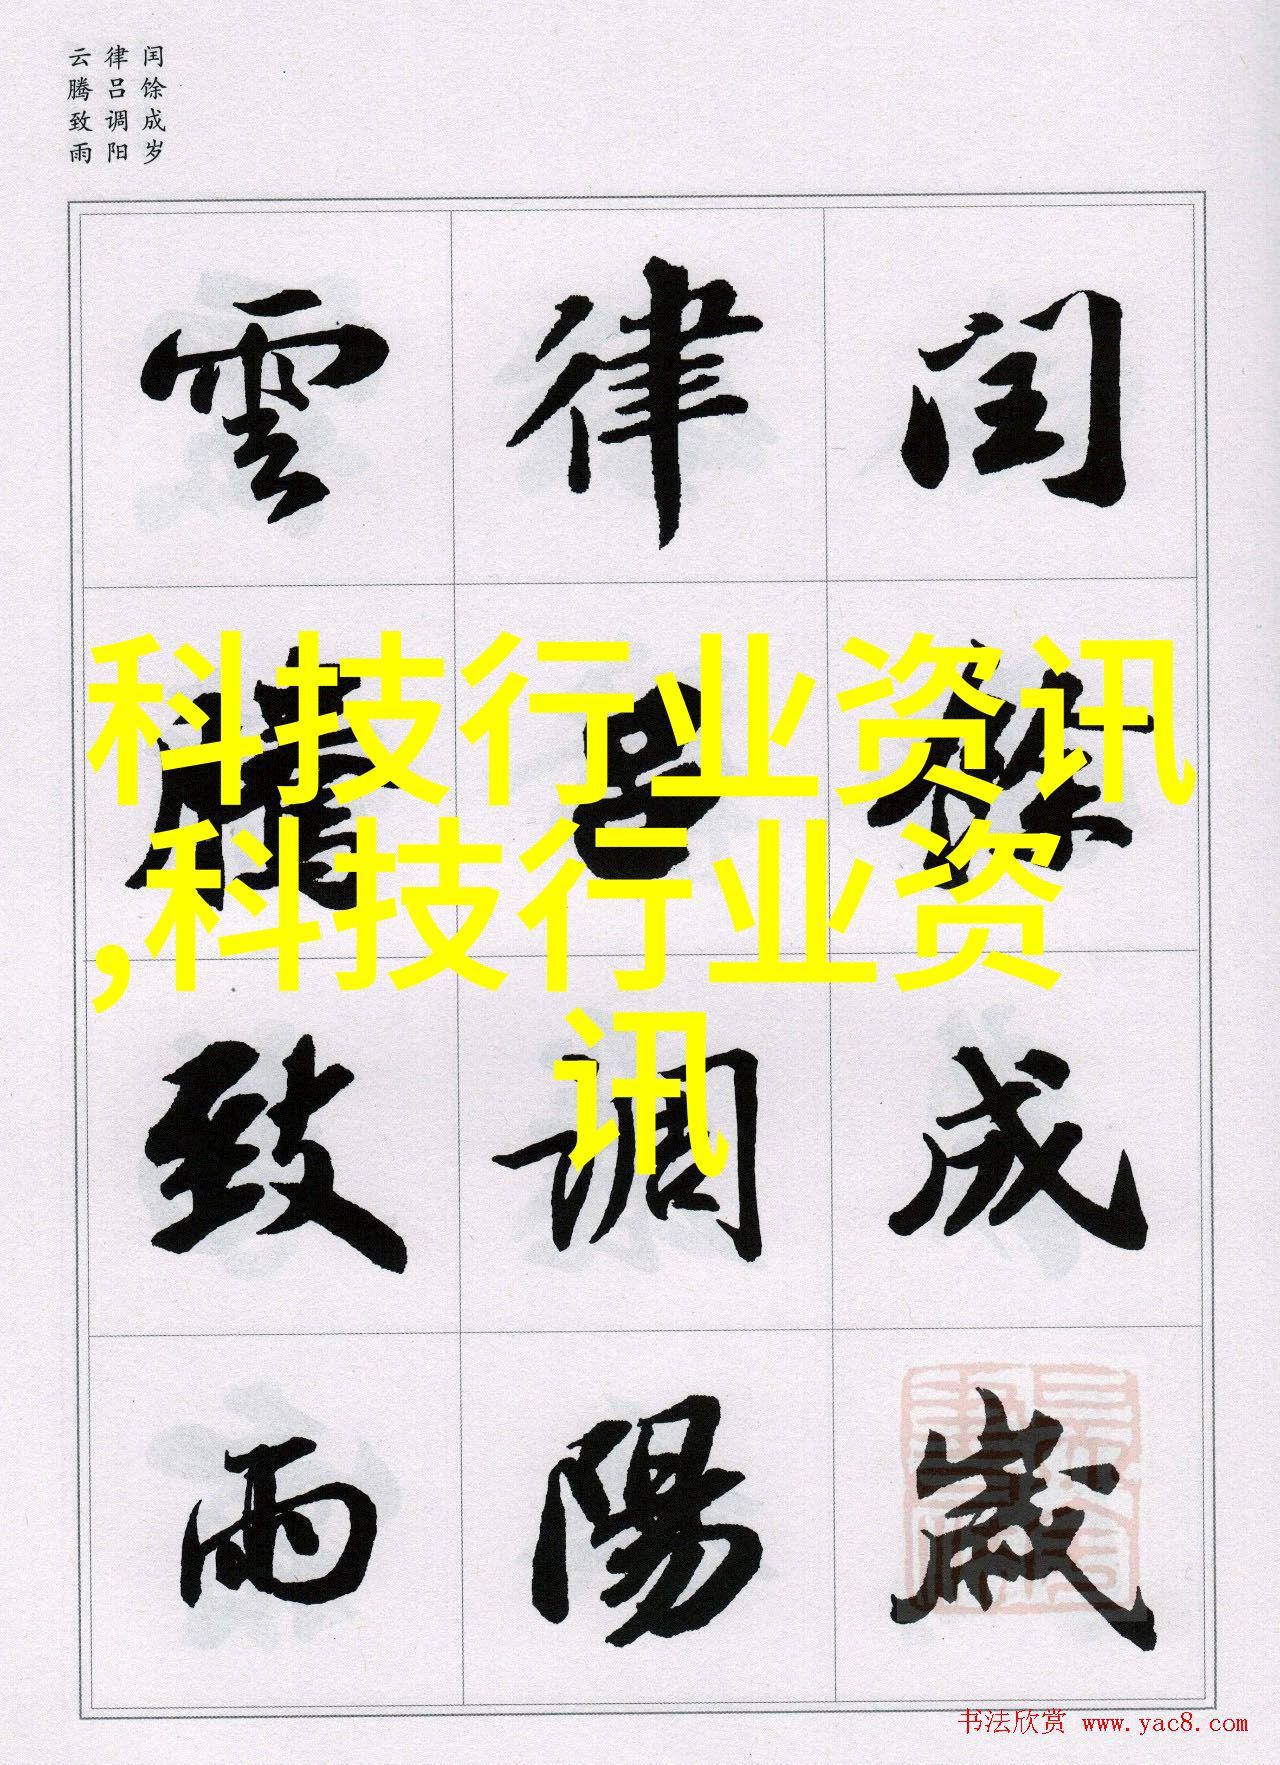 闰馀成岁
律吕调阳
云腾致雨
閏餘成歲
律呂調陽
雲騰致雨
科技行业资讯
,科技行业资
讯
书法欣赏 www.yac8.com